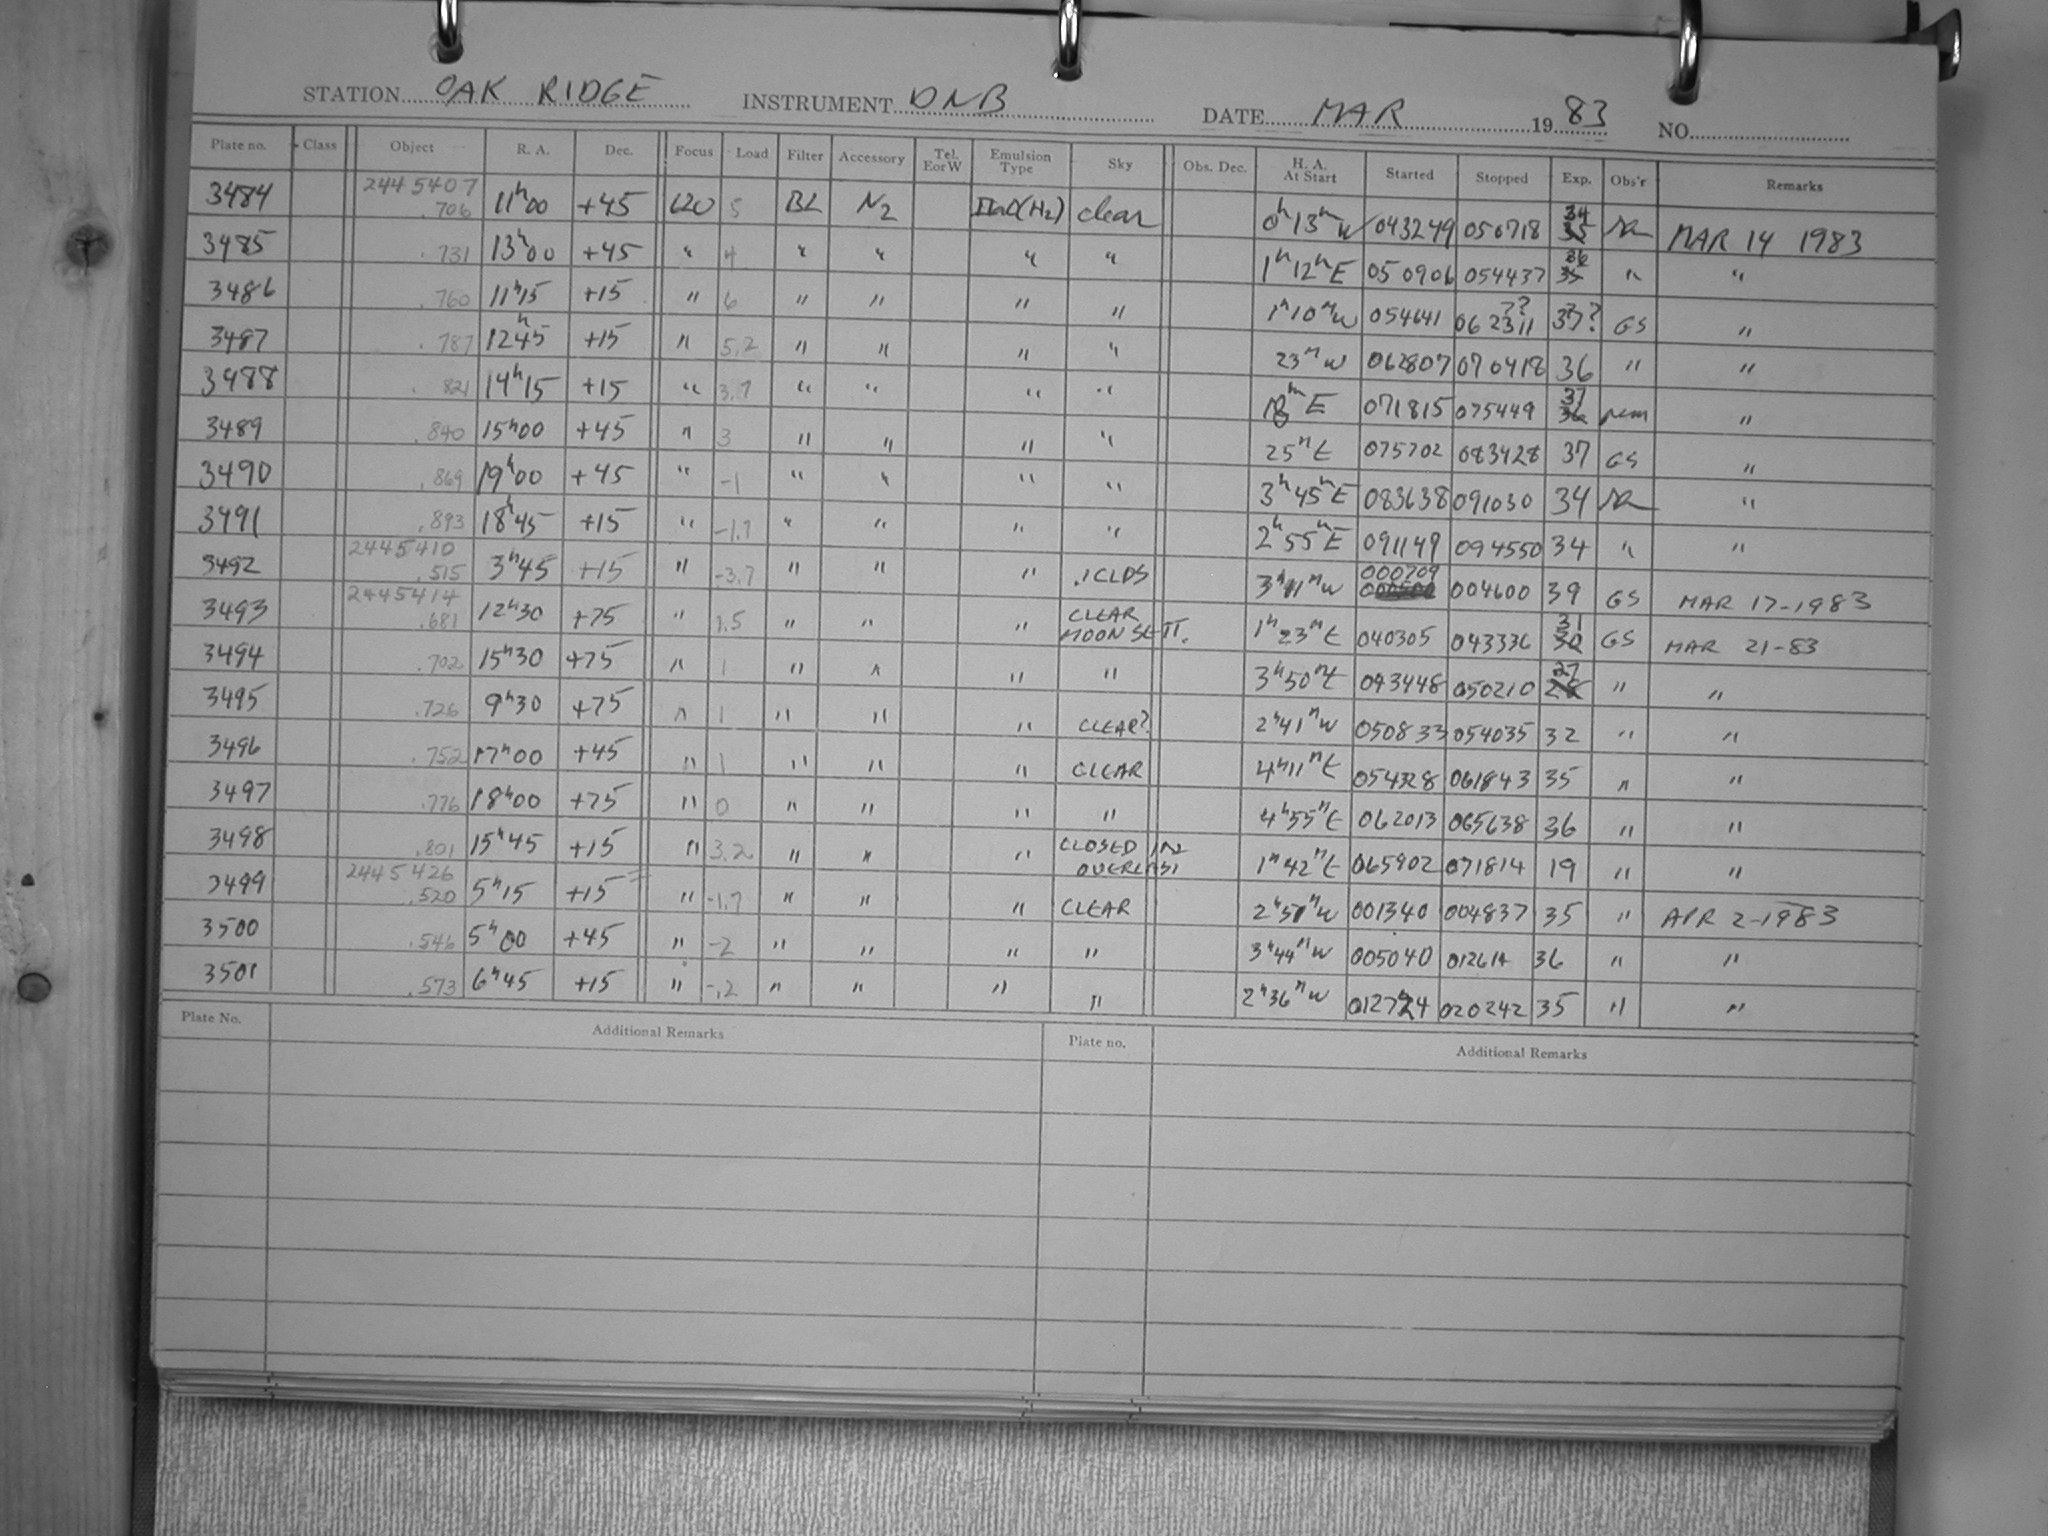 STATION OAK RIDGE INSTRUMENT DNB DATE MAR 1983 NO.
Plate no. Class Object R. A. Dec. Focus Load Filter Accessory Tel. E or W Emulsion Type Sky Obs. Dec. H. A. At Start Started Stopped Exp. Obs'r Remarks
3484 2445407 .706 11h00 +45 120 5 BL N2 IIaO(H2) clear 0h13m W 043249 050718 34 MAR 14 1983
3485 .731 13h00 +45 " 4 " " " " 1h12m E 050906 054437 36 " "
3486 .760 11h15 +15 " 6 " " " " 1h10m W 054641 062311 ?? 37? GS "
3487 .787 12h45 +15 " 5.2 " " " " 23m W 062807 070418 36 " "
3488 .821 14h15 +15 " 3.7 " " " " 18m E 071815 075449 37 "
3489 .840 15h00 +45 " 3 " " " " 25m E 075702 083428 37 GS "
3490 .869 19h00 +45 " -1 " " " " 3h45m E 083638 091030 34 "
3491 .893 18h45 +15 " -1.7 " " " " 2h55m E 091149 094550 34 " "
3492 2445410 .515 3h45 +15 " -3.7 " " " .1CLDS 3h11m W 000709 004600 39 GS MAR 17-1983
3493 2445414 .681 12h30 +75 " 1.5 " " " CLEAR MOON SETT. 1h23m E 040305 043336 31 GS MAR 21-83
3494 .702 15h30 +75 " 1 " " " " 3h50m E 043448 050210 27 " "
3495 .726 9h30 +75 " 1 " " " CLEAR? 2h41m W 050833 054035 32 " "
3496 .752 17h00 +45 " 1 " " " CLEAR 4h11m E 054328 061843 35 " "
3497 .776 18h00 +75 " 0 " " " " 4h55m E 062013 065638 36 " "
3498 .801 15h45 +15 " 3.2 " " " CLOSED IN OVERCAST 1h42m E 065902 071814 19 " "
3499 2445426 .520 5h15 +15 " -1.7 " " " CLEAR 2h51m W 001340 004837 35 " APR 2-1983
3500 .546 5h00 +45 " -2 " " " " 3h44m W 005040 012614 36 " "
3501 .573 6h45 +15 " -.2 " " " " 2h36m W 012724 020242 35 " "
Plate No. Additional Remarks Plate no. Additional Remarks